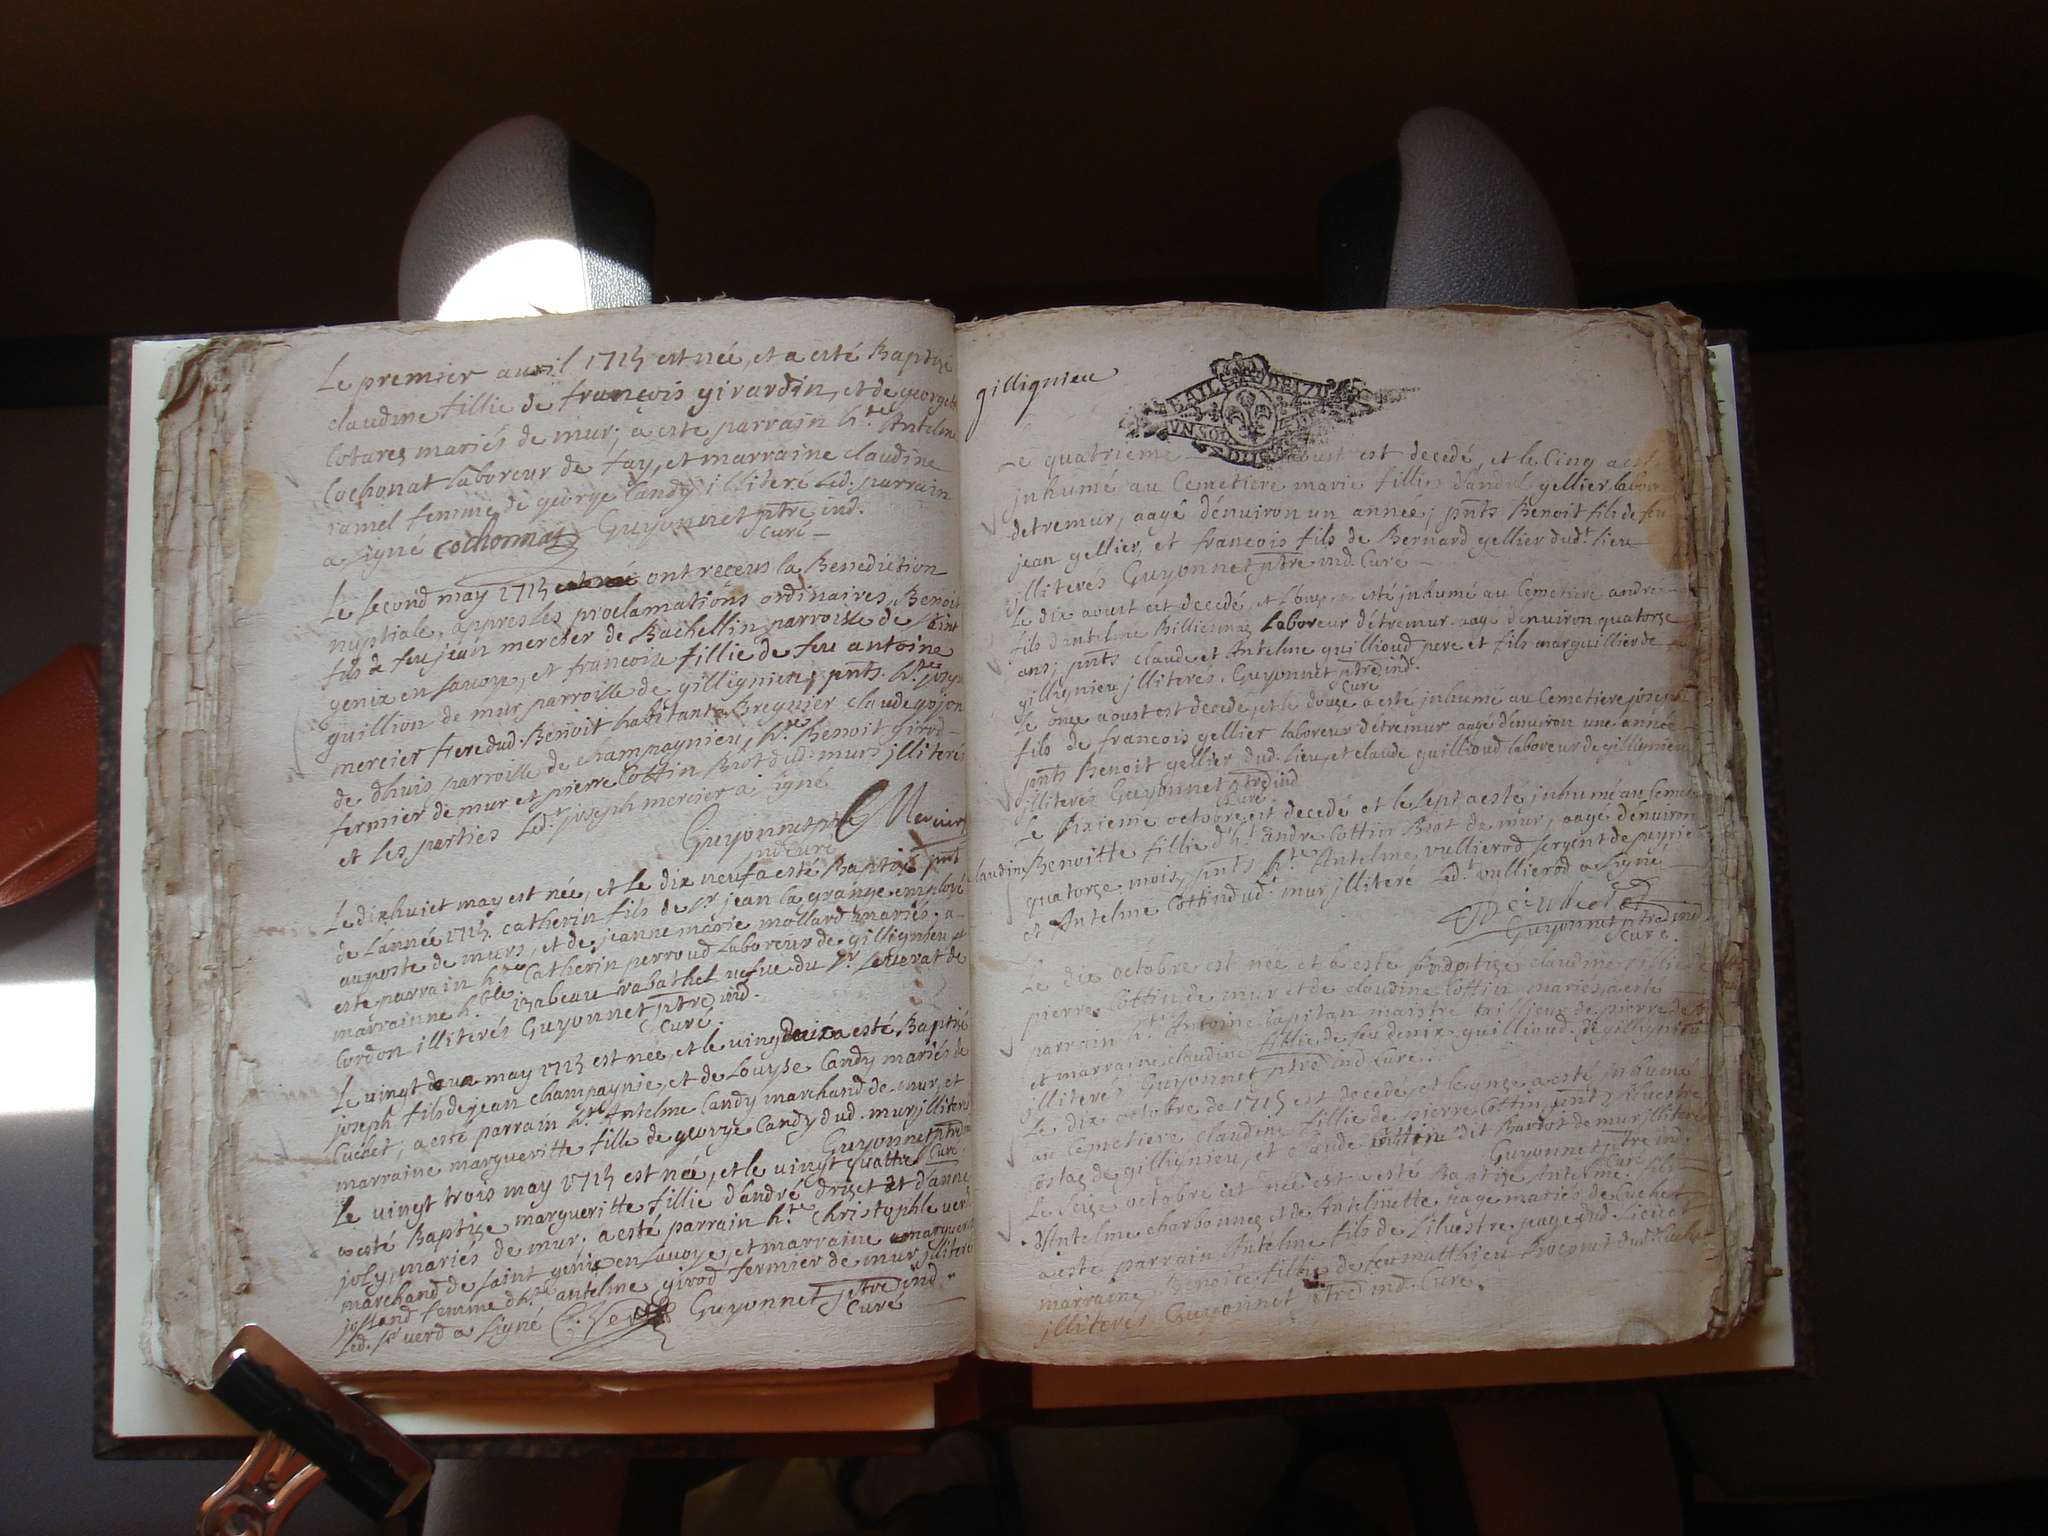 Le premier avril 1715 est née, et a esté Baptizé
claudine fillie de françois girardin, et de georgette
Cotarez mariés de mur; a esté parrain h.te Antelme
Cochonat laboreur de fay, et marraine claudine
ramel femme de george Candy illitere Led. parrain
a signé cochonnat Guyonnet ptre ind.
Curé
Le second may 1715 ont reçeus la Benediction
nuptiale, appres les proclamations ordinaires, Benoit
fils de feu jean mercier de Bachellin parroisse de saint
genix en savoye, et francoise fillie de feu antoine
guillion de mur parroisse de gillignieu; pnts h.te joseph
mercier frere dud. Benoit habitant a Bregnier claude gojon
de dhuis parroisse de champagnieu, h.te Benoit girod
fermier de mur et pierre Cottin Biot dud. mur illiterés
et les parties Led. joseph mercier a signé
Guyonnet ptre Mercier
ind Curé
Le dixhuict may est née, et Le dix neuf a esté Baptizé pnt
de Lannée 1715. catherin fils de s.r jean la grange employé
au poste de murs, et de jeanne marie mollard mariés, a
esté parrain h.te Catherin perroud Laboreur de gillignieu et
marrainne h.ble izabeau rabathel vefue du s.r de
Cordon illiterés Guyonnet ptre ind.
Curé.
Le vingt deux may 1715 est née, et le vingt a esté Baptizé
joseph fils de jean champagnie, et de Louyse Candy mariés de
Cuchet, a esté parrain h.te Antelme Candy marchand de mur, et
marraine margueritte fille de george Candy dud. mur illiterés
Guyonnet ptre ind
Curé
Le vingt trois may 1715 est née, et le vingt quattre
a esté Baptize margueritte fillie d'andré drizet et d'anne
joly, mariés de mur. a esté parrain h.te christophle verd
marchand de saint genix en savoye, et marraine marguerite
jolland femme d'h.te antelme girod fermier de mur illitere
Led. s.r verd a signé C. Verd Guyonnet ptre ind
Curé
gillignieu
VN SOL
Le quatrieme aoust est decedé, et le Cinq a est
inhumé au Cemetiere marie fillie d'andré gellier laboreur
detremur, aagé d'enuiron un année; pnts Benoit fils de feu
jean gellier, et francois fils de Bernard gellier dud. lieu
illiterés Guyonnet ptre ind. Curé
Le dix aoust est decedé, et l'onze a esté inhumé au Cemetiere andré
fils d'antelme Billiemaz laboreur d'etremur aagé d'enuiron quatorze
ans; pnts claude et Antelme guillioud pere et fils marguillier de
gillignieu illiterés. Guyonnet ptre ind.
Curé
Le onze aoust est decedé, et le douze a esté inhumé au Cemetiere joseph
fils de francois gellier laboreur d'etremur aagé d'enuiron une année
pnts Benoit gellier dud. lieu, et claude guillioud laboreur de gillignieu
illiterés Guyonnet ptre ind
Curé
Le sixieme octobre est decedé et le sept a esté inhumé au Cemetiere
claudine Benoitte fillie d'h.te andre Cottin Biot de mur, aagé d'enuiron
quatorze mois, pnts h.te Antelme vullierod sergent de peyrieu
et Antelme Cottin dud. mur illiteré Led. vullierod a signé
Guyonnet ptre ind
Curé.
Le dix octobre est née et a esté claudine fillie de
pierre Cottin de mur et de claudine Cottin mariés, a esté
parrain h.te Antoine Capitan maistre de pierre de
et marraine claudine fillie de feu denix guillioud de gillignieu
illiterés Guyonnet ptre ind Curé.
Le dix octobre de 1715 est decedé, et le onze a esté inhumé
au Cemetiere claudine fillie de pierre Cottin pnts siluestre
costaz de gillignieu, et claude Cottin dit Bardot de mur illiteré
Guyonnet ptre ind.
Curé
Le seize octobre est née est a esté Baptize Antelme fils
d'Antelme charbonnez et de Antelmette page mariés de Cuchet
a esté parrain Antelme fils de siluestre page dud. lieu et
marraine Benoite fillie de feu matthieu dud. Cuchet
illiterés Guyonnet ptre ind. Curé.